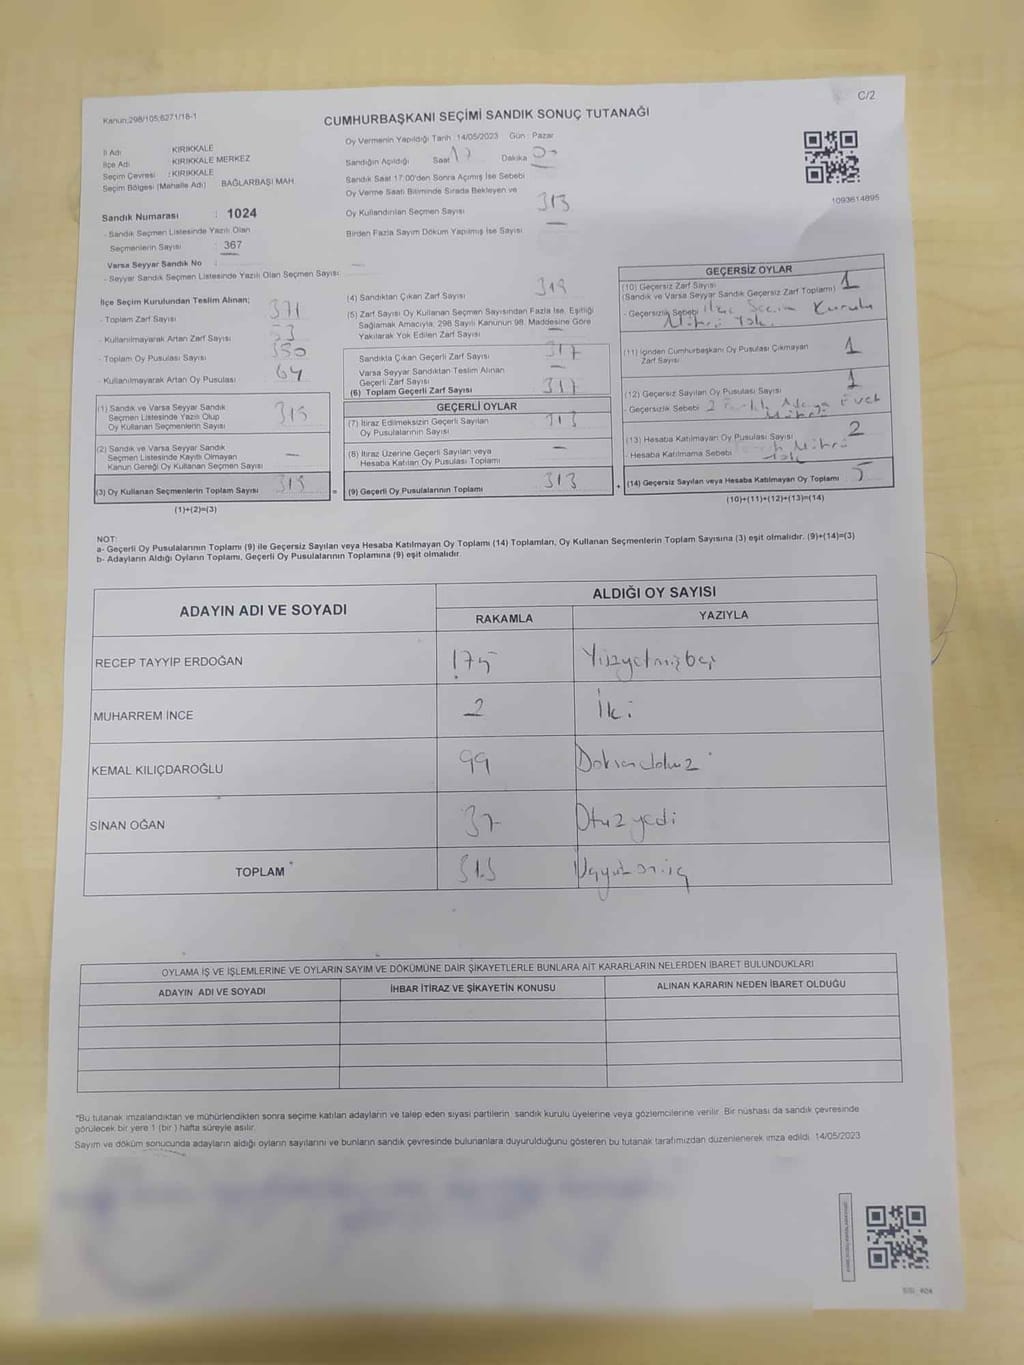 C/2
Kanun:298/105;6271/18-1
CUMHURBAŞKANI SEÇİMİ SANDIK SONUÇ TUTANAĞI
İl Adı KIRIKKALE
İlçe Adı : KIRIKKALE MERKEZ
Seçim Çevresi : KIRIKKALE
Seçim Bölgesi (Mahalle Adı) BAĞLARBAŞI MAH.
Sandık Numarası : 1024
- Sandık Seçmen Listesinde Yazılı Olan
Seçmenlerin Sayısı : 367
Varsa Seyyar Sandık No
- Seyyar Sandık Seçmen Listesinde Yazılı Olan Seçmen Sayısı:
Oy Vermenin Yapıldığı Tarih :14/05/2023 Gün : Pazar
Sandığın Açıldığı Saat 17 Dakika
Sandık Saat 17:00'den Sonra Açımış İse Sebebi
Oy Verme Saati Bitiminde Sırada Bekleyen ve
Oy Kullandırılan Seçmen Sayısı 313
Birden Fazla Sayım Döküm Yapılmış İse Sayısı —
1093614895
İlçe Seçim Kurulundan Teslim Alınan;
- Toplam Zarf Sayısı 371
- Kullanılmayarak Artan Zarf Sayısı 53
- Toplam Oy Pusulası Sayısı 350
- Kullanılmayarak Artan Oy Pusulası 64
(1) Sandık ve Varsa Seyyar Sandık
Seçmen Listesinde Yazılı Olup
Oy Kullanan Seçmenlerin Sayısı
(2) Sandık ve Varsa Seyyar Sandık
Seçmen Listesinde Kayıtlı Olmayan
Kanun Gereği Oy Kullanan Seçmen Sayısı —
(3) Oy Kullanan Seçmenlerin Toplam Sayısı
(1)+(2)=(3)
(4) Sandıktan Çıkan Zarf Sayısı
(5) Zarf Sayısı Oy Kullanan Seçmen Sayısından Fazla İse, Eşitliği
Sağlamak Amacıyla, 298 Sayılı Kanunun 98. Maddesine Göre
Yakılarak Yok Edilen Zarf Sayısı —
Sandıkta Çıkan Geçerli Zarf Sayısı 317
Varsa Seyyar Sandıktan Teslim Alınan
Geçerli Zarf Sayısı —
(6) Toplam Geçerli Zarf Sayısı 317
GEÇERLİ OYLAR
(7) İtiraz Edilmeksizin Geçerli Sayılan
Oy Pusulalarının Sayısı 313
(8) İtiraz Üzerine Geçerli Sayılan veya
Hesaba Katılan Oy Pusulası Toplamı —
= (9) Geçerli Oy Pusulalarının Toplamı 313 +
GEÇERSİZ OYLAR
(10) Geçersiz Zarf Sayısı 1
(Sandık ve Varsa Seyyar Sandık Geçersiz Zarf Toplamı)
- Geçersizlik Sebebi İlçe Seçim Kurulu
Mührü Yok.
(11) İçinden Cumhurbaşkanı Oy Pusulası Çıkmayan
Zarf Sayısı 1
(12) Geçersiz Sayılan Oy Pusulası Sayısı 1
- Geçersizlik Sebebi 2 Farklı Adaya Evet
Mührü
(13) Hesaba Katılmayan Oy Pusulası Sayısı 2
- Hesaba Katılmama Sebebi Mührü
Yok
(14) Geçersiz Sayılan veya Hesaba Katılmayan Oy Toplamı 5
(10)+(11)+(12)+(13)=(14)
NOT:
a- Geçerli Oy Pusulalarının Toplamı (9) ile Geçersiz Sayılan veya Hesaba Katılmayan Oy Toplamı (14) Toplamları, Oy Kullanan Seçmenlerin Toplam Sayısına (3) eşit olmalıdır. (9)+(14)=(3)
b- Adayların Aldığı Oyların Toplamı, Geçerli Oy Pusulalarının Toplamına (9) eşit olmalıdır.
ADAYIN ADI VE SOYADI ALDIĞI OY SAYISI
RAKAMLA YAZIYLA
RECEP TAYYİP ERDOĞAN 175 Yüzyetmişbeş
MUHARREM İNCE 2 İki
KEMAL KILIÇDAROĞLU 99 Doksandokuz
SİNAN OĞAN 37 Otuzyedi
TOPLAM 313 Üçyüzonüç
OYLAMA İŞ VE İŞLEMLERİNE VE OYLARIN SAYIM VE DÖKÜMÜNE DAİR ŞİKAYETLERLE BUNLARA AİT KARARLARIN NELERDEN İBARET BULUNDUKLARI
ADAYIN ADI VE SOYADI İHBAR İTİRAZ VE ŞİKAYETİN KONUSU ALINAN KARARIN NEDEN İBARET OLDUĞU
*Bu tutanak imzalandıktan ve mühürlendikten sonra seçime katılan adayların ve talep eden siyasi partilerin sandık kurulu üyelerine veya gözlemcilerine verilir. Bir nüshası da sandık çevresinde
görülecek bir yere 1 (bir ) hafta süreyle asılır.
Sayım ve döküm sonucunda adayların aldığı oyların sayılarını ve bunların sandık çevresinde bulunanlara duyurulduğunu gösteren bu tutanak tarafımızdan düzenlenerek imza edildi. 14/05/2023